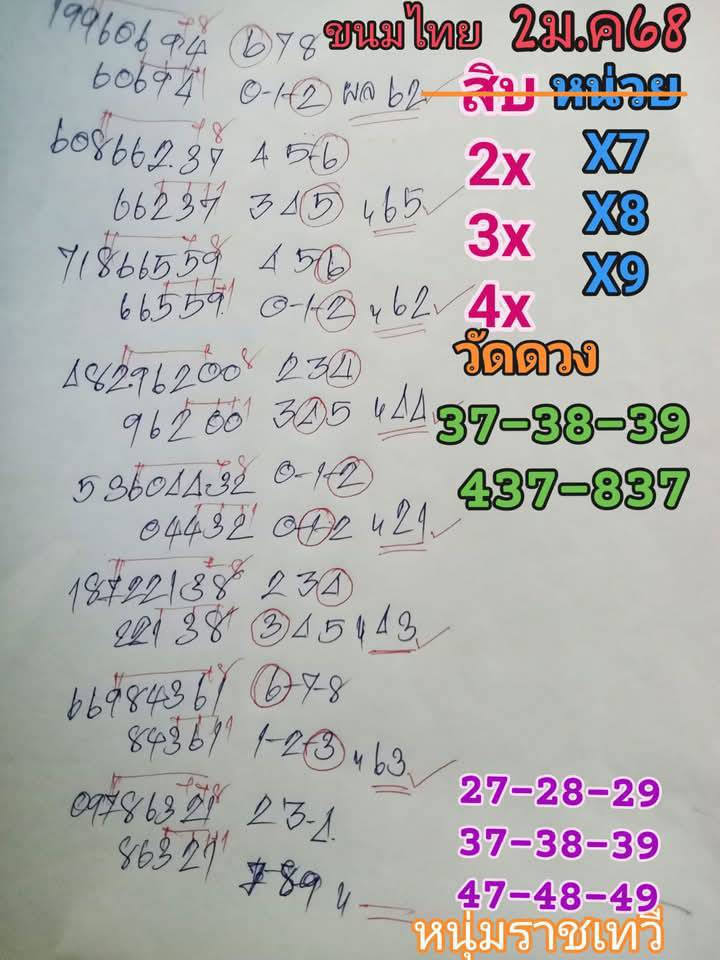 19960694 678
ขนมไทย 2ม.ค68
60694 0-1-2 ผล 62
สิบ หน่วย
60866237 456
2x X7
66237 345 น 65
3x X8
71866559 456
X9
66559 0-1-2 น 62
4x
48296200 234
วัดดวง
96200 345 น 44
37-38-39
53604432 0-1-2
437-837
04432 0-1-2 น 21
18722138 234
22138 345 น 43
66984361 6-7-8
84361 1-2-3 น 63
09786321 23-4
27-28-29
86321
37-38-39
789 น
47-48-49
หนุ่มราชเทวี